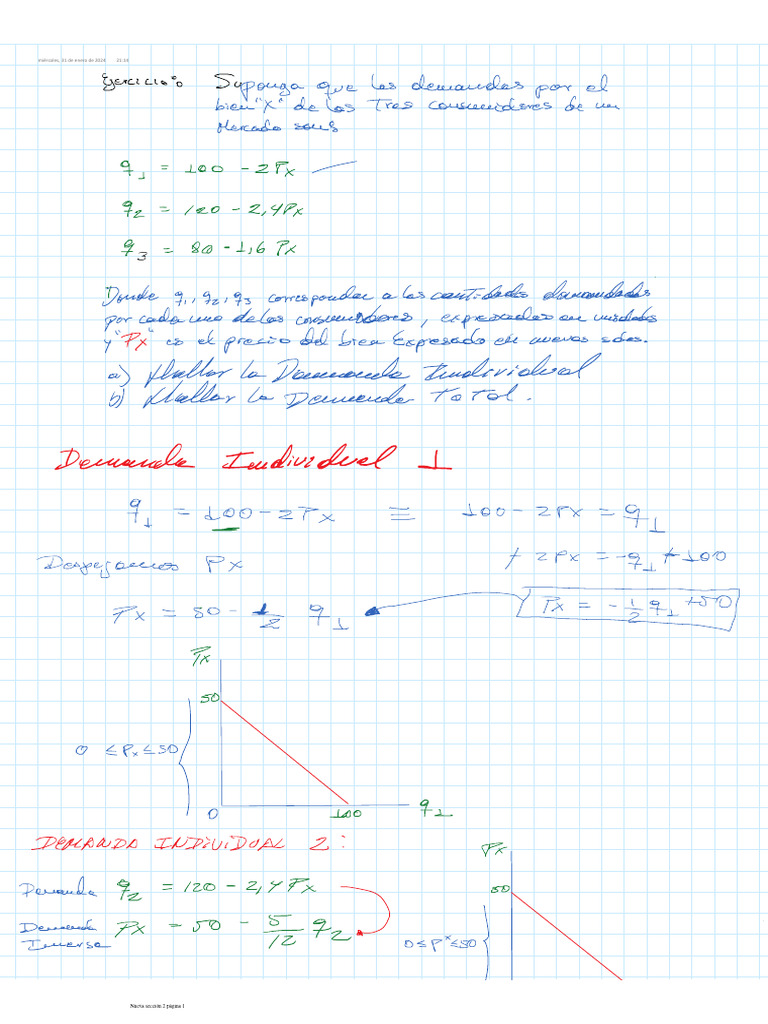 miércoles, 31 de enero de 2024 21:14
Ejercicio:
Suponga que las demandas por el
bien "X" de los Tres consumidores de un
Mercado sons
q1 = 100 - 2Px
q2 = 120 - 2,4Px
q3 = 80 - 1,6 Px
Donde q1, q2, q3 corresponden a las cantidades demandadas
por cada uno de los consumidores, expresadas en unidades
y "Px" es el precio del bien Expresado en nuevos soles.
a) Hallar la Demanda Individual
b) Hallar la Demanda ToTal.
Demanda Individual 1
q1 = 100 - 2Px ≡ 100 - 2Px = q1
+ 2Px = -q1 + 100
Despejamos Px
Px = 80 - 1/2 q1
Px = - 1/2 q1 + 50
Px
50
0 ≤ Px ≤ 50
0
100
q1
DEMANDA INDIVIDUAL 2:
Demanda q2 = 120 - 2,4 Px
Demanda Inversa Px = 50 - 5/12 q2
Px
50
0 ≤ Px ≤ 50
Nueva sección 2 página 1